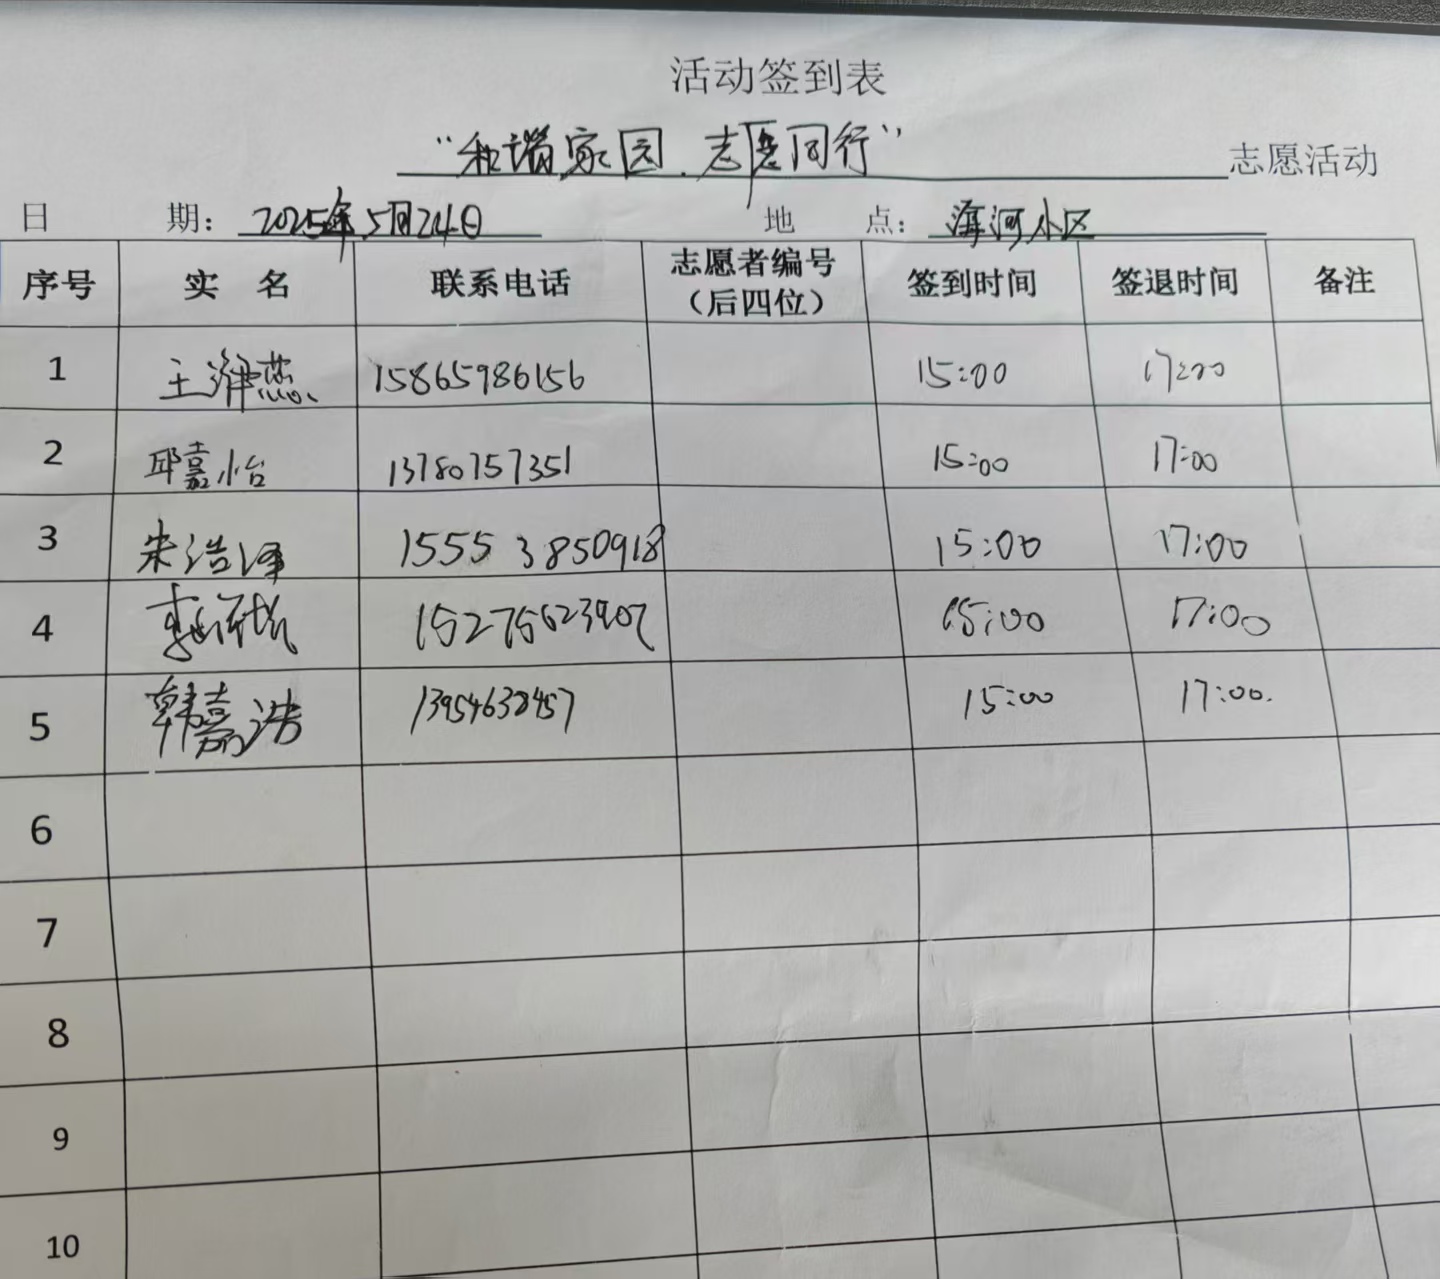 活动签到表
“和谐家园.志愿同行”志愿活动
日期：2025年5月24日 地点：海河小区
序号 实名 联系电话 志愿者编号（后四位） 签到时间 签退时间 备注
1 王 燕 15865986156 15:00 17:00
2 邱嘉怡 13780757351 15:00 17:00
3 朱浩泽 15553850918 15:00 17:00
4 李 15:00 17:00
5 韩嘉浩 13954632457 15:00 17:00.
6
7
8
9
10